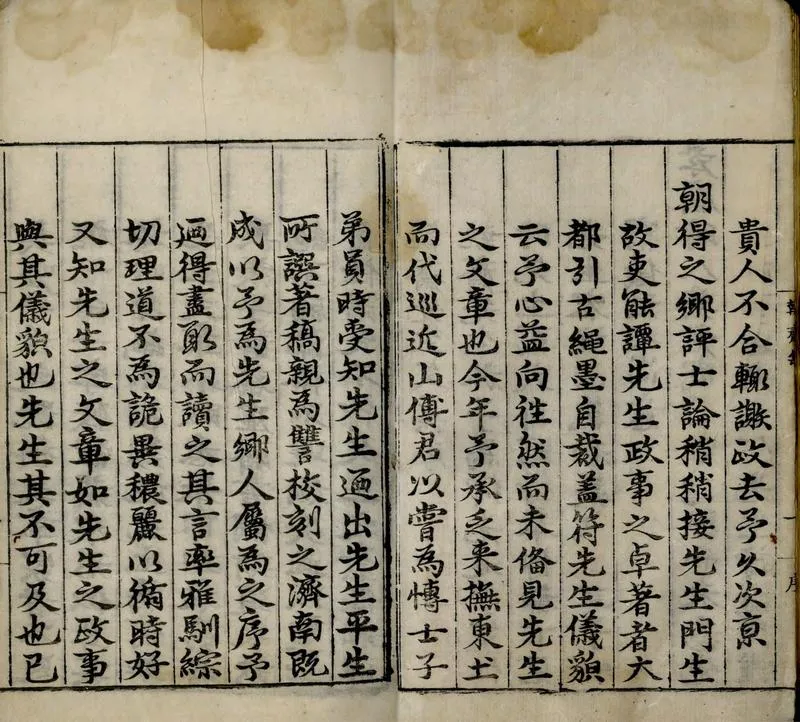 貴人不合輙謝政去予久次京
朝得之鄉評士論稍稍接先生門生
故吏能譚先生政事之卓著者大
都引古繩墨自裁盖符先生儀貌
云予心益向往然而未俻見先生
之文章也今年予承乏来撫東土
而代巡近山傅君以嘗為愽士子
弟員時受知先生迺出先生平生
所譔著稿親為讐校刻之濟南既
成以予為先生鄉人屬為之序予
迺得盡取而讀之其言率雅馴綜
切理道不為詭異穠麗以徇時好
又知先生之文章如先生之政事
與其儀貌也先生其不可及也已
序
一